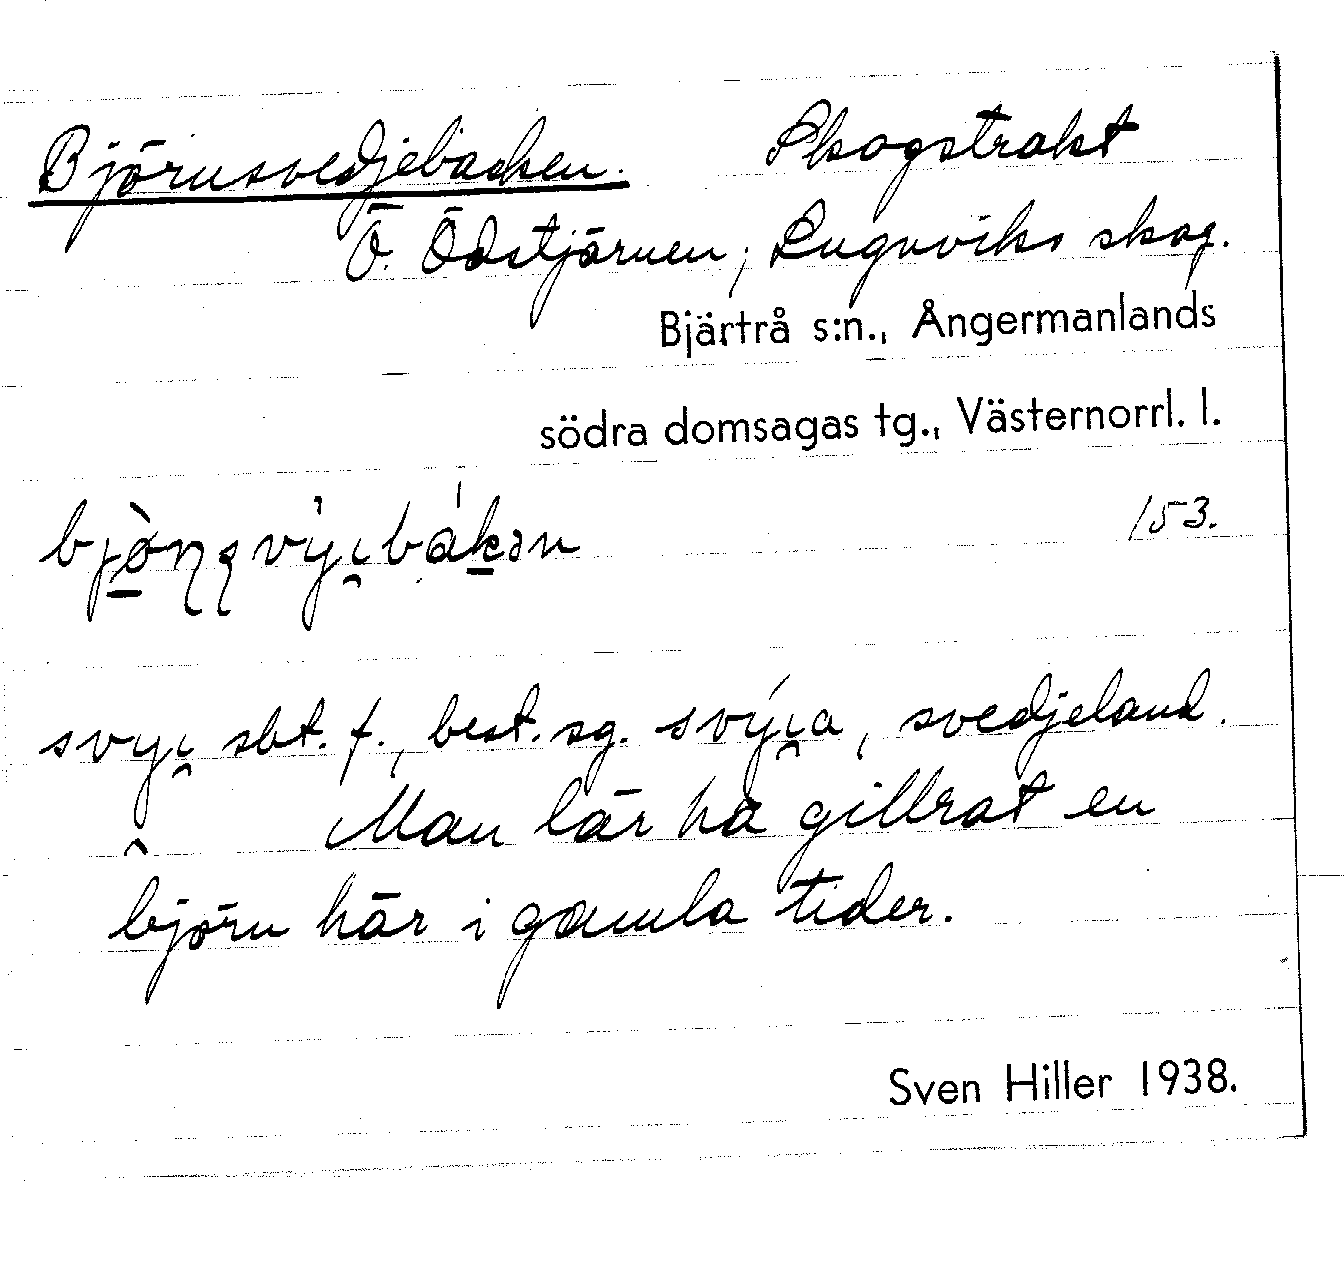 Björnsvedjebacken. Skogstrakt
Ö. Ödstjärnen; Lugnviks skog.
Bjärtrå s:n., Ångermanlands
södra domsagas tg., Västernorrl. l.
153.
sbt. f., best. sg. svedjeland.
Man lär ha gillrat en
björn här i gamla tider.
Sven Hiller 1938.